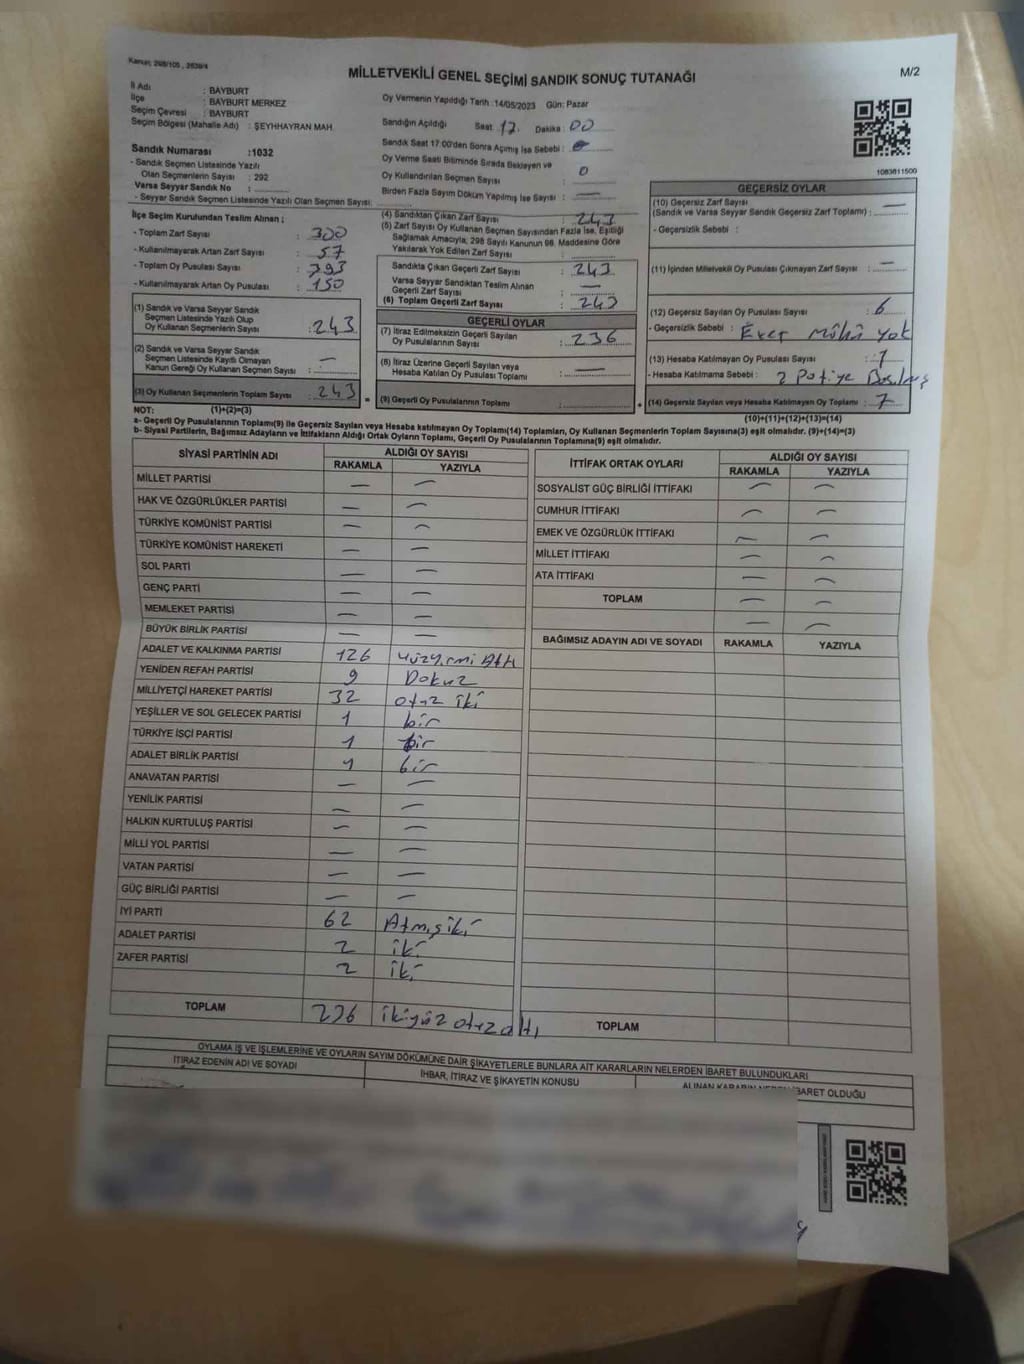 Kanun; 298/105 , 2839/4
MİLLETVEKİLİ GENEL SEÇİMİ SANDIK SONUÇ TUTANAĞI
M/2
İl Adı : BAYBURT
İlçe : BAYBURT MERKEZ
Seçim Çevresi : BAYBURT
Seçim Bölgesi (Mahalle Adı) : ŞEYHHAYRAN MAH.
Sandık Numarası :1032
- Sandık Seçmen Listesinde Yazılı
Olan Seçmenlerin Sayısı : 292
Varsa Seyyar Sandık No :
- Seyyar Sandık Seçmen Listesinde Yazılı Olan Seçmen Sayısı:
Oy Vermenin Yapıldığı Tarih :14/05/2023 Gün: Pazar
Sandığın Açıldığı Saat 17. Dakika : 00
Sandık Saat 17.00'den Sonra Açılmış İse Sebebi :
Oy Verme Saati Bitiminde Sırada Bekleyen ve
Oy Kullandırılan Seçmen Sayısı : 0
Birden Fazla Sayım Döküm Yapılmış İse Sayısı : —
1083811500
İlçe Seçim Kurulundan Teslim Alınan ;
- Toplam Zarf Sayısı : 300
- Kullanılmayarak Artan Zarf Sayısı : 57
- Toplam Oy Pusulası Sayısı : 393
- Kullanılmayarak Artan Oy Pusulası : 150
(1) Sandık ve Varsa Seyyar Sandık
Seçmen Listesinde Yazılı Olup
Oy Kullanan Seçmenlerin Sayısı :243
(2) Sandık ve Varsa Seyyar Sandık
Seçmen Listesinde Kayıtlı Olmayan
Kanun Gereği Oy Kullanan Seçmen Sayısı : —
(3) Oy Kullanan Seçmenlerin Toplam Sayısı : 243
(4) Sandıktan Çıkan Zarf Sayısı : 243
(5) Zarf Sayısı Oy Kullanan Seçmen Sayısından Fazla İse, Eşitliği
Sağlamak Amacıyla, 298 Sayılı Kanunun 98. Maddesine Göre
Yakılarak Yok Edilen Zarf Sayısı :
Sandıkta Çıkan Geçerli Zarf Sayısı : 243
Varsa Seyyar Sandıktan Teslim Alınan
Geçerli Zarf Sayısı : —
(6) Toplam Geçerli Zarf Sayısı : 243
GEÇERLİ OYLAR
(7) İtiraz Edilmeksizin Geçerli Sayılan
Oy Pusulalarının Sayısı : 236
(8) İtiraz Üzerine Geçerli Sayılan veya
Hesaba Katılan Oy Pusulası Toplamı : —
(9) Geçerli Oy Pusulalarının Toplamı :
GEÇERSİZ OYLAR
(10) Geçersiz Zarf Sayısı
(Sandık ve Varsa Seyyar Sandık Geçersiz Zarf Toplamı) : —
- Geçersizlik Sebebi :
(11) İçinden Milletvekili Oy Pusulası Çıkmayan Zarf Sayısı : —
(12) Geçersiz Sayılan Oy Pusulası Sayısı : 6
- Geçersizlik Sebebi : Evet Mühü Yok
(13) Hesaba Katılmayan Oy Pusulası Sayısı : 1
- Hesaba Katılmama Sebebi : 2 Patiye Basılmış
(14) Geçersiz Sayılan veya Hesaba Katılmayan Oy Toplamı : 7
NOT: (1)+(2)=(3)
(10)+(11)+(12)+(13)=(14)
a- Geçerli Oy Pusulalarının Toplamı(9) ile Geçersiz Sayılan veya Hesaba katılmayan Oy Toplamı(14) Toplamları, Oy Kullanan Seçmenlerin Toplam Sayısına(3) eşit olmalıdır. (9)+(14)=(3)
b- Siyasi Partilerin, Bağımsız Adayların ve İttifakların Aldığı Ortak Oyların Toplamı, Geçerli Oy Pusulalarının Toplamına(9) eşit olmalıdır.
SİYASİ PARTİNİN ADI
ALDIĞI OY SAYISI
RAKAMLA YAZIYLA
MİLLET PARTİSİ — —
HAK VE ÖZGÜRLÜKLER PARTİSİ — —
TÜRKİYE KOMÜNİST PARTİSİ — —
TÜRKİYE KOMÜNİST HAREKETİ — —
SOL PARTİ — —
GENÇ PARTİ — —
MEMLEKET PARTİSİ — —
BÜYÜK BİRLİK PARTİSİ — —
ADALET VE KALKINMA PARTİSİ 126 yüzyirmi Altı
YENİDEN REFAH PARTİSİ 9 Dokuz
MİLLİYETÇİ HAREKET PARTİSİ 32 otuz iki
YEŞİLLER VE SOL GELECEK PARTİSİ 1 bir
TÜRKİYE İŞÇİ PARTİSİ 1 bir
ADALET BİRLİK PARTİSİ 1 bir
ANAVATAN PARTİSİ — —
YENİLİK PARTİSİ — —
HALKIN KURTULUŞ PARTİSİ — —
MİLLİ YOL PARTİSİ — —
VATAN PARTİSİ — —
GÜÇ BİRLİĞİ PARTİSİ — —
İYİ PARTİ 62 Atmışiki
ADALET PARTİSİ 2 iki
ZAFER PARTİSİ 2 iki
TOPLAM 236 ikiyüz otuz altı
İTTİFAK ORTAK OYLARI
ALDIĞI OY SAYISI
RAKAMLA YAZIYLA
SOSYALİST GÜÇ BİRLİĞİ İTTİFAKI — —
CUMHUR İTTİFAKI — —
EMEK VE ÖZGÜRLÜK İTTİFAKI — —
MİLLET İTTİFAKI — —
ATA İTTİFAKI — —
TOPLAM — —
— —
BAĞIMSIZ ADAYIN ADI VE SOYADI RAKAMLA YAZIYLA
TOPLAM
OYLAMA İŞ VE İŞLEMLERİNE VE OYLARIN SAYIM DÖKÜMÜNE DAİR ŞİKAYETLERLE BUNLARA AİT KARARLARIN NELERDEN İBARET BULUNDUKLARI
İTİRAZ EDENİN ADI VE SOYADI
İHBAR, İTİRAZ VE ŞİKAYETİN KONUSU
ALINAN KARARIN NEDEN İBARET OLDUĞU